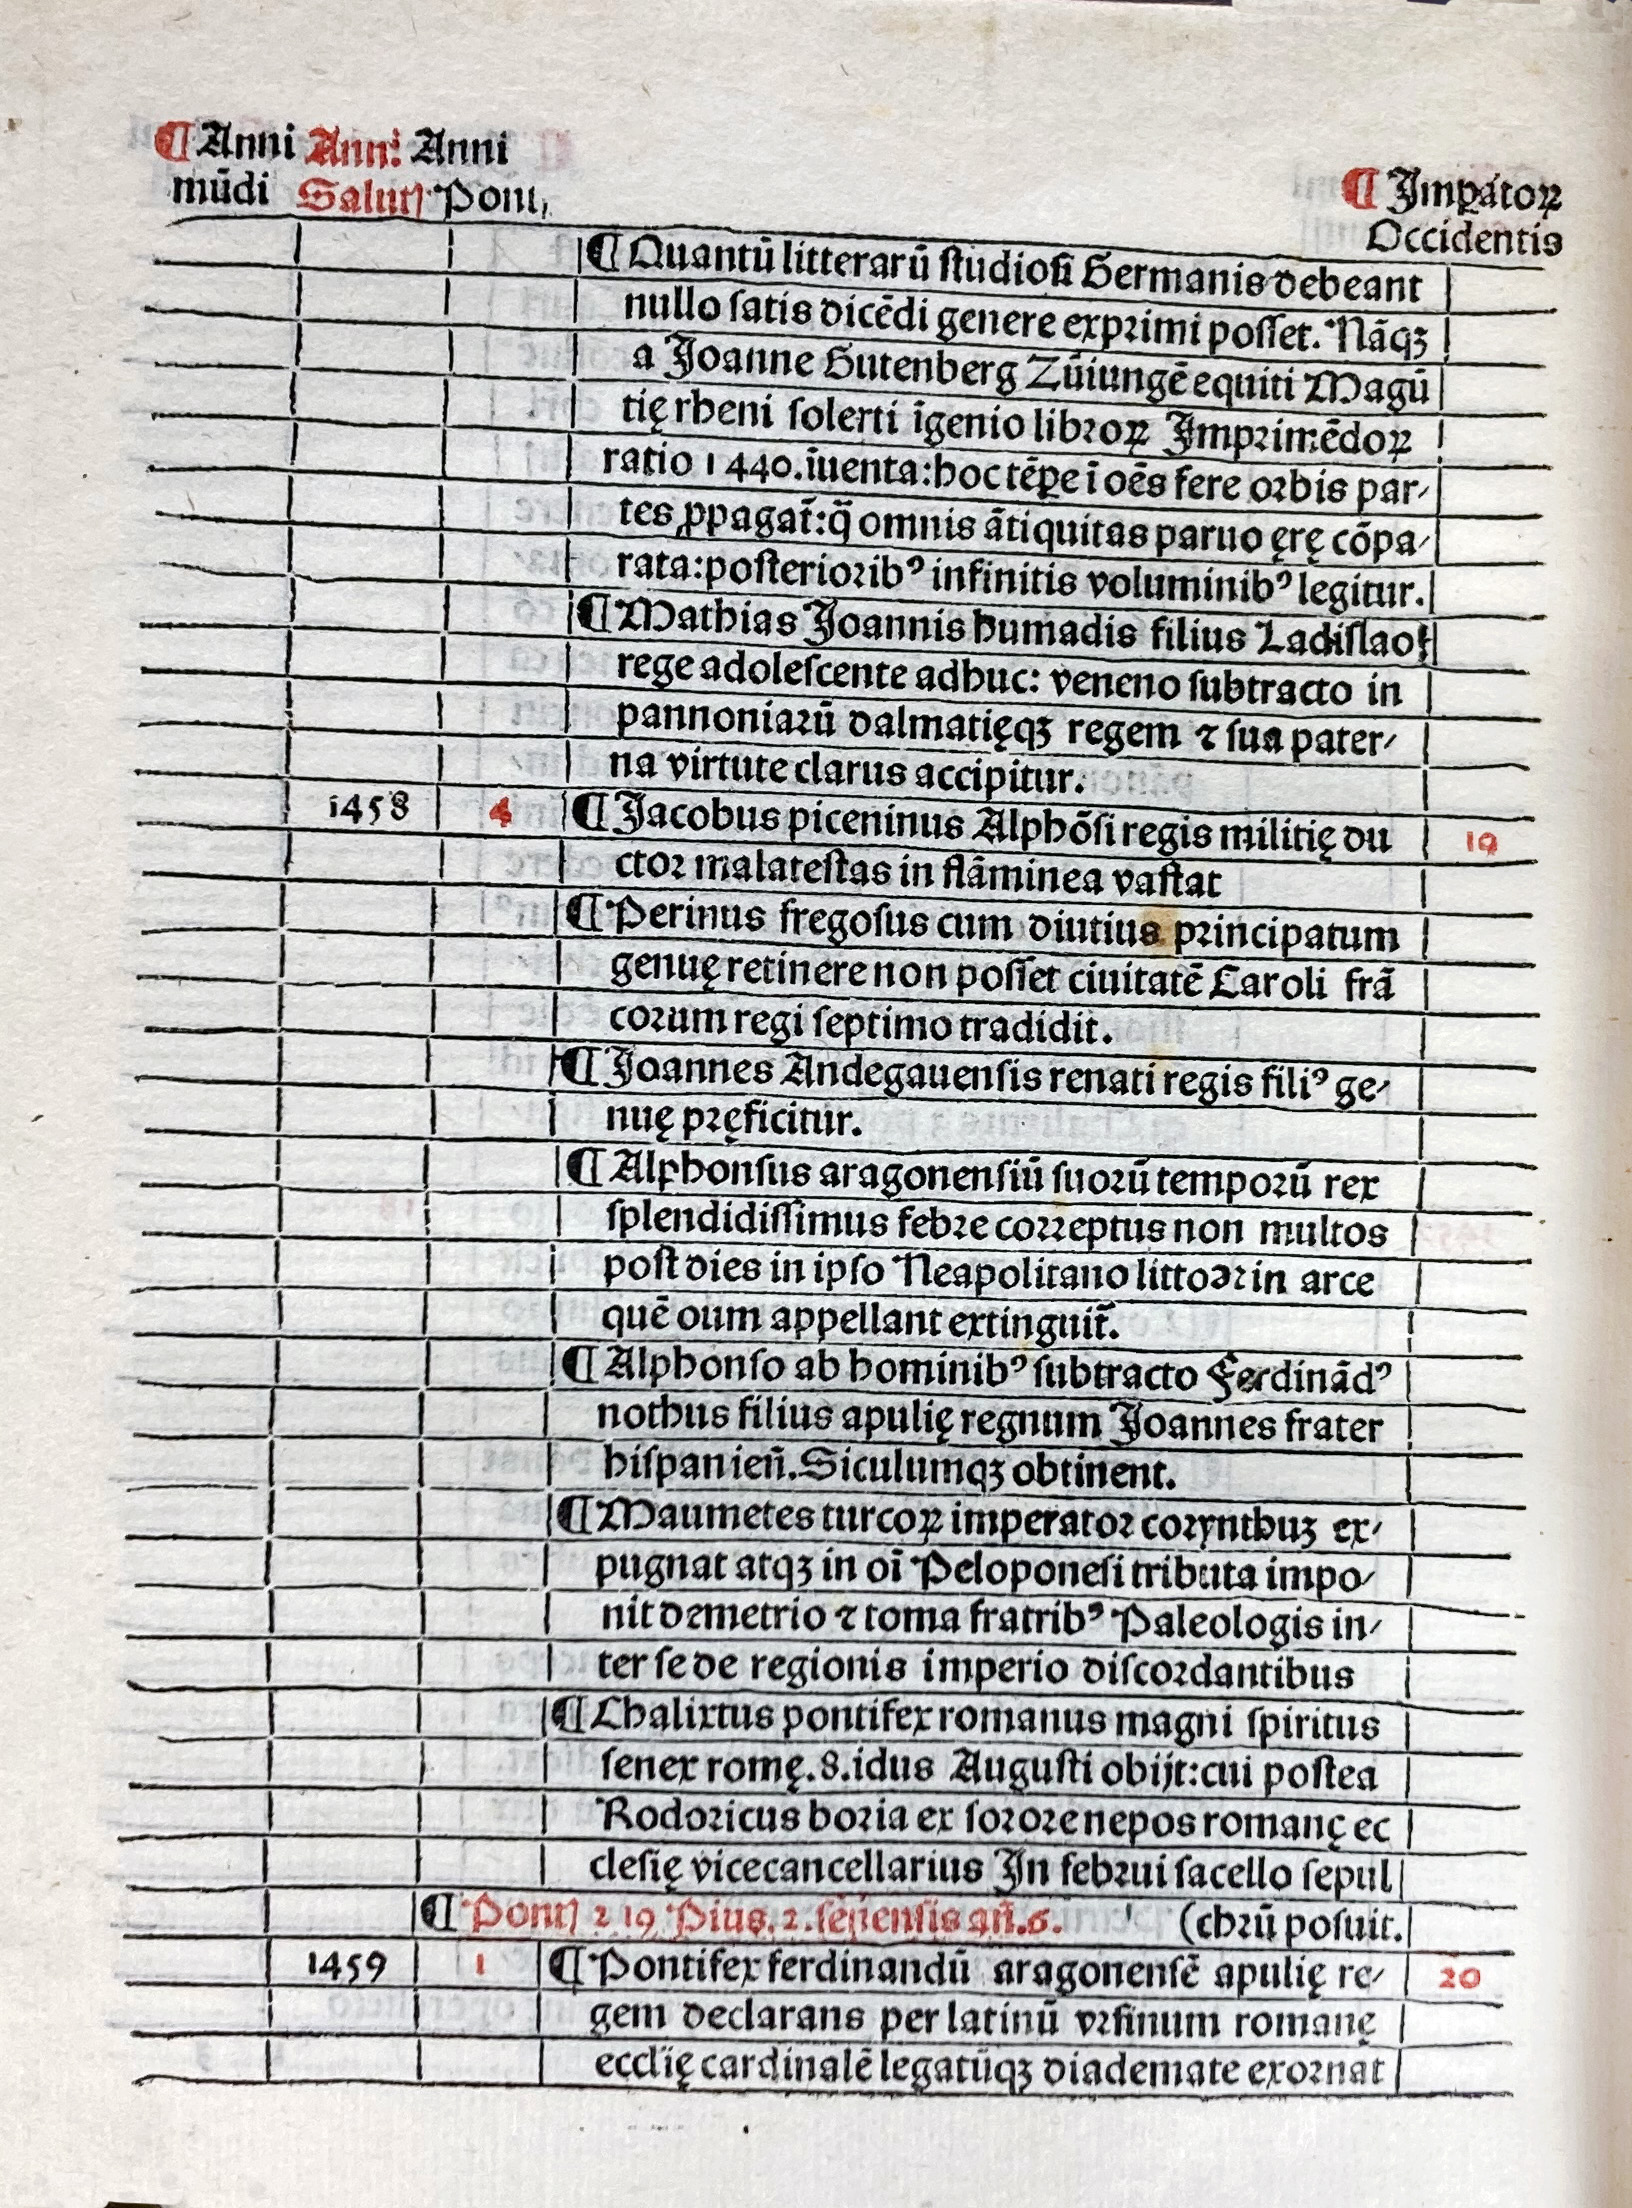 ¶ Anni Anni Anni
mūdi Salutꝭ Pont,
¶ Impatoꝝ
Occidentis
¶ Quantū litterarū studiosi Germanis debeant
nullo satis dicēdi genere exprimi posset. Nāqꝫ
a Joanne Gutenberg Zūiungē equiti Magū
tię rheni solerti īgenio libroꝝ Imprimēdoꝝ
ratio 1440. īuenta: hoc tēꝑe ī oēs fere orbis par⸗
tes ꝓpagat̄: q̄ omnis ātiquitas paruo ęrę cōpa⸗
rata: posteriorib⁹ infinitis voluminib⁹ legitur.
¶ Mathias Joannis humadis filius Ladislao
rege adolescente adhuc: veneno subtracto in
pannoniarū dalmatięqꝫ regem ⁊ sua pater⸗
na virtute clarus accipitur.
1458 4 ¶ Jacobus piceninus Alphōsi regis militię du 19
ctor malatestas in flāminea vastat
¶ Perinus fregosus cum diutius principatum
genuę retinere non posset ciuitatē Caroli frā
corum regi septimo tradidit.
¶ Joannes Andegauensis renati regis fili⁹ ge⸗
nuę pręficitur.
¶ Alphonsus aragonensiū suorū temporū rex
splendidissimus febre correptus non multos
post dies in ipso Neapolitano littoꝛe in arce
quē oum appellant extinguit̄.
¶ Alphonso ab hominib⁹ subtracto Ferdinād⁹
nothus filius apulię regnum Joannes frater
hispanien̄. Siculumqꝫ obtinent.
¶ Maumetes turcoꝝ imperator corynthuꝫ ex⸗
pugnat atqꝫ in oī Peloponesi tributa impo⸗
nit demetrio ⁊ toma fratrib⁹ Paleologis in⸗
ter se de regionis imperio discordantibus
¶ Chalixtus pontifex romanus magni spiritus
senex romę. 8. idus Augusti obijt: cui postea
Rodoricus boria ex sorore nepos romanę ec
clesię vicecancellarius In februi sacello sepul
¶ Pontꝭ 219 Pius. 2. senensis an̄. 6. (chrū posuit.
1459 1 ¶ Pontifex ferdinandū aragonensē apulię re⸗ 20
gem declarans per latinū vrsinum romanę
eccl̄ię cardinalē legatūqꝫ diademate exornat